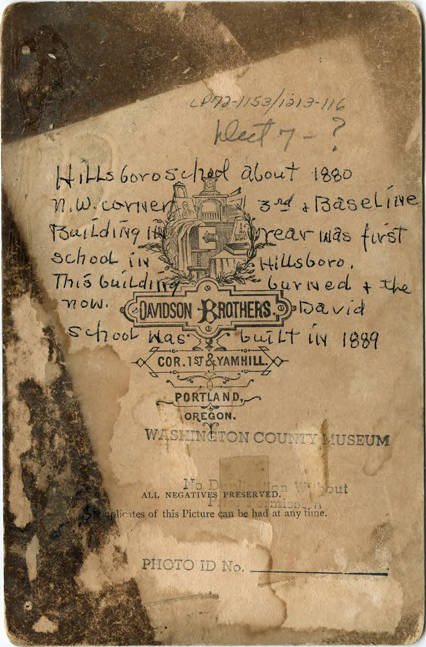 LP72-1153/1213-116
Dist 7 - ?
Hillsboro school about 1880
N.W. corner 3rd & Baseline
Building in rear was first
school in Hillsboro.
This building burned & the
now. David
school was built in 1889
DAVIDSON BROTHERS.
COR. 1ST & YAMHILL.
PORTLAND,
OREGON.
WASHINGTON COUNTY MUSEUM
No Without
ALL NEGATIVES PRESERVED.
Duplicates of this Picture can be had at any time.
PHOTO ID No.